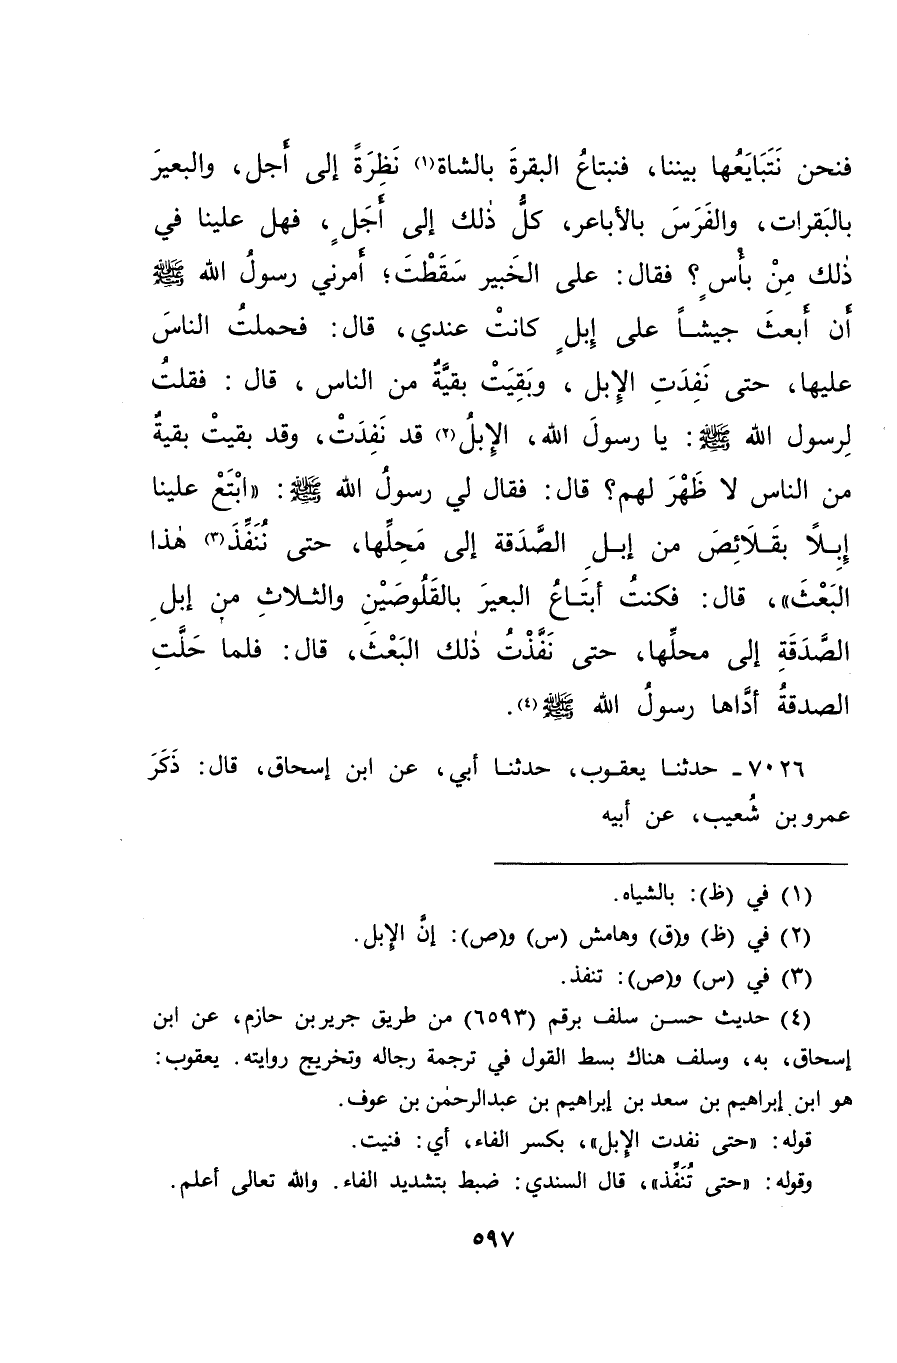 فنحن نَتَبَايَعُها بيننا، فنبتاعُ البقرةَ بالشاة(١) نَظِرَةً إلى أَجل، والبعيرَ
بالبَقرات، والفَرَسَ بالأباعر، كلُّ ذٰلك إلى أَجَلٍ، فهل علينا في
ذٰلك مِنْ بأْسٍ؟ فقال: على الخَبير سَقَطْتَ؛ أَمرني رسولُ الله ﷺ
أَن أَبعثَ جيشاً على إِبلٍ كانتْ عندي، قال: فحملتُ الناسَ
عليها، حتى نَفِدَتِ الإِبل، وبَقِيَتْ بقيَّةٌ من الناس، قال: فقلتُ
لِرسول الله ﷺ: يا رسولَ الله، الإِبلُ(٢) قد نَفِدَتْ، وقد بقيتْ بقيةٌ
من الناس لا ظَهْرَ لهم؟ قال: فقال لي رسولُ الله ﷺ: «ابْتَعْ علينا
إِبلًا بقَلَائِصَ من إبلِ الصَّدَقة إلى مَحِلِّها، حتى نُنَفِّذَ(٣) هٰذا
البَعْثَ»، قال: فكنتُ أبتَاعُ البعيرَ بالقَلُوصَيْنِ والثلاثِ من إبلِ
الصَّدَقَةِ إلى محلِّها، حتى نَفَّذْتُ ذٰلك البَعْثَ، قال: فلما حَلَّتِ
الصدقةُ أدَّاها رسولُ الله ﷺ(٤).
٧٠٢٦ـ حدثنا يعقوب، حدثنا أبي، عن ابن إسحاق، قال: ذَكَرَ
عمرو بن شُعيب، عن أبيه
(١) في (ظ): بالشياه.
(٢) في (ظ) و(ق) وهامش (س) و(ص): إنَّ الإِبل.
(٣) في (س) و(ص): تنفذ.
(٤) حديث حسن سلف برقم (٦٥٩٣) من طريق جرير بن حازم، عن ابن
إسحاق، به، وسلف هناك بسط القول في ترجمة رجاله وتخريج روايته. يعقوب:
هو ابن إبراهيم بن سعد بن إبراهيم بن عبدالرحمٰن بن عوف.
قوله: «حتى نفدت الإبل»، بكسر الفاء، أي: فنيت.
وقوله: «حتى تُنَفِّذ»، قال السندي: ضبط بتشديد الفاء. والله تعالى أعلم.
٥٩٧